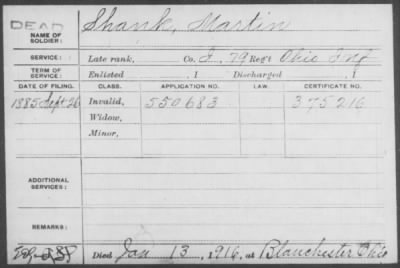 DEAD
NAME OF SOLDIER: Shank, Martin
SERVICE: Late rank, Co. I, 79 Reg't Ohio Inf
TERM OF SERVICE: Enlisted , 1 Discharged , 1
DATE OF FILING. CLASS. APPLICATION NO. LAW. CERTIFICATE NO.
1885 Sept 26 Invalid, 550683 375216
Widow,
Minor,
ADDITIONAL SERVICES:
REMARKS:
Died Jan 13, 1916, at Blanchester Ohio